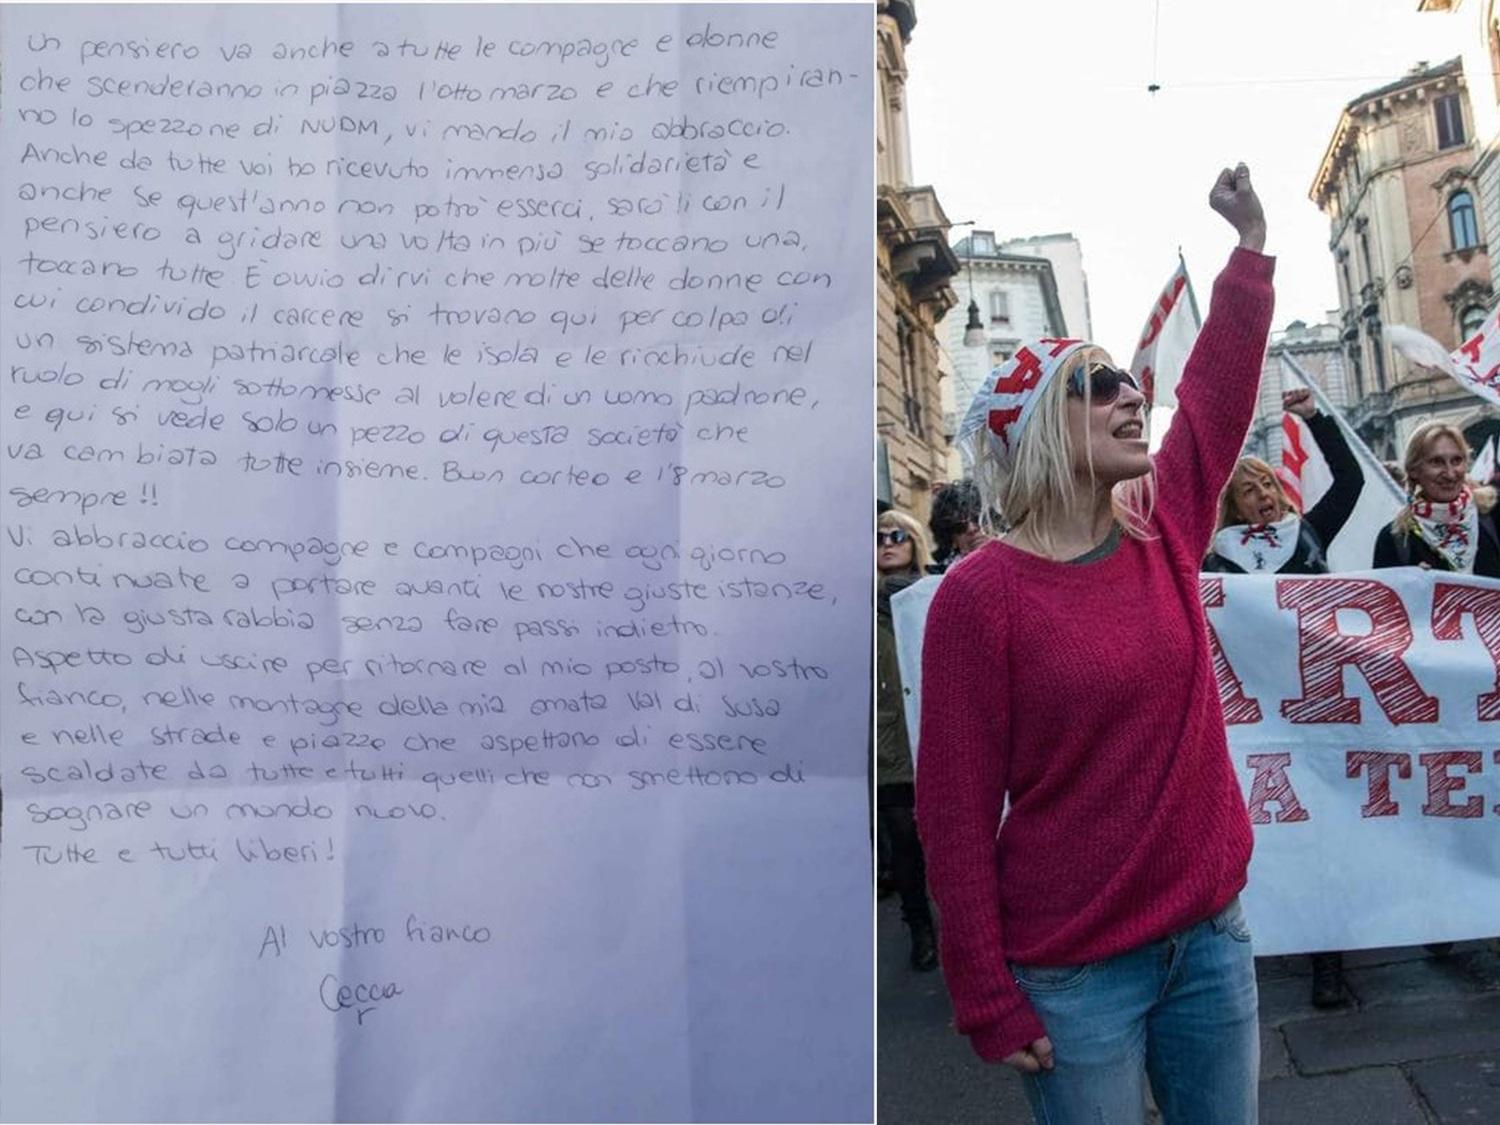 Un pensiero va anche a tutte le compagne e donne
che scenderanno in piazza l'otto marzo e che riempiran-
no lo spezzone di NUDM, vi mando il mio abbraccio.
Anche da tutte voi ho ricevuto immensa solidarietà e
anche se quest'anno non potrò esserci, sarò lì con il
pensiero a gridare una volta in più se toccano una,
toccano tutte. È ovvio dirvi che molte delle donne con
cui condivido il carcere si trovano qui per colpa di
un sistema patriarcale che le isola e le rinchiude nel
ruolo di mogli sottomesse al volere di un uomo padrone,
e qui si vede solo un pezzo di questa società che
va cambiata tutte insieme. Buon corteo e l'8 marzo
sempre!!
Vi abbraccio compagne e compagni che ogni giorno
continuate a portare avanti le nostre giuste istanze,
con la giusta rabbia senza fare passi indietro.
Aspetto di uscire per ritornare al mio posto, al vostro
fianco, nelle montagne della mia amata Val di Susa
e nelle strade e piazze che aspettano di essere
scaldate da tutte e tutti quelli che non smettono di
sognare un mondo nuovo.
Tutte e tutti liberi!
Al vostro fianco
Cecca
ART
A TE